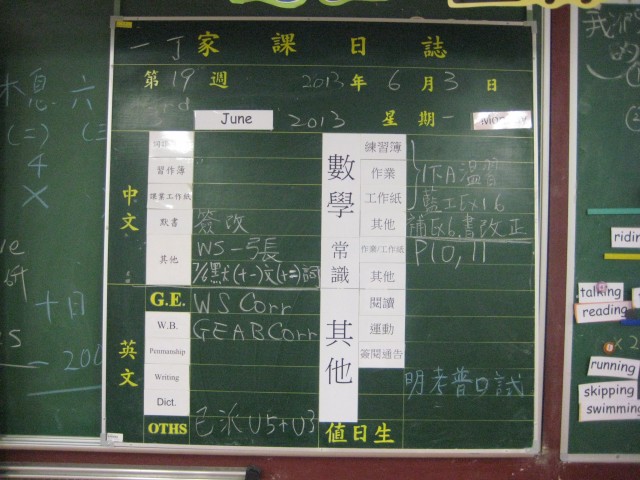 一丁家課日誌
第19週 2013年6月3日
3rd June 2013 星期一
中文
習作簿
課業工作紙
默書 簽改
其他 WS一張
7/6默士(十一)文(十二)詞
英文
G.E. WS Corr
W.B. GEAB Corr
Penmanship
Writing
Dict.
OTHS 已派U5+U3
數學
練習簿
作業 1下A溫習
工作紙 藍工Ex16
其他 補Ex6,書改正
常識
作業/工作紙 P10,11
其他
其他
閱讀
運動
簽閱通告
明考普口試
值日生
木息 六
(二)
4
X
十月
我們
talking
reading
running
skipping
swimming